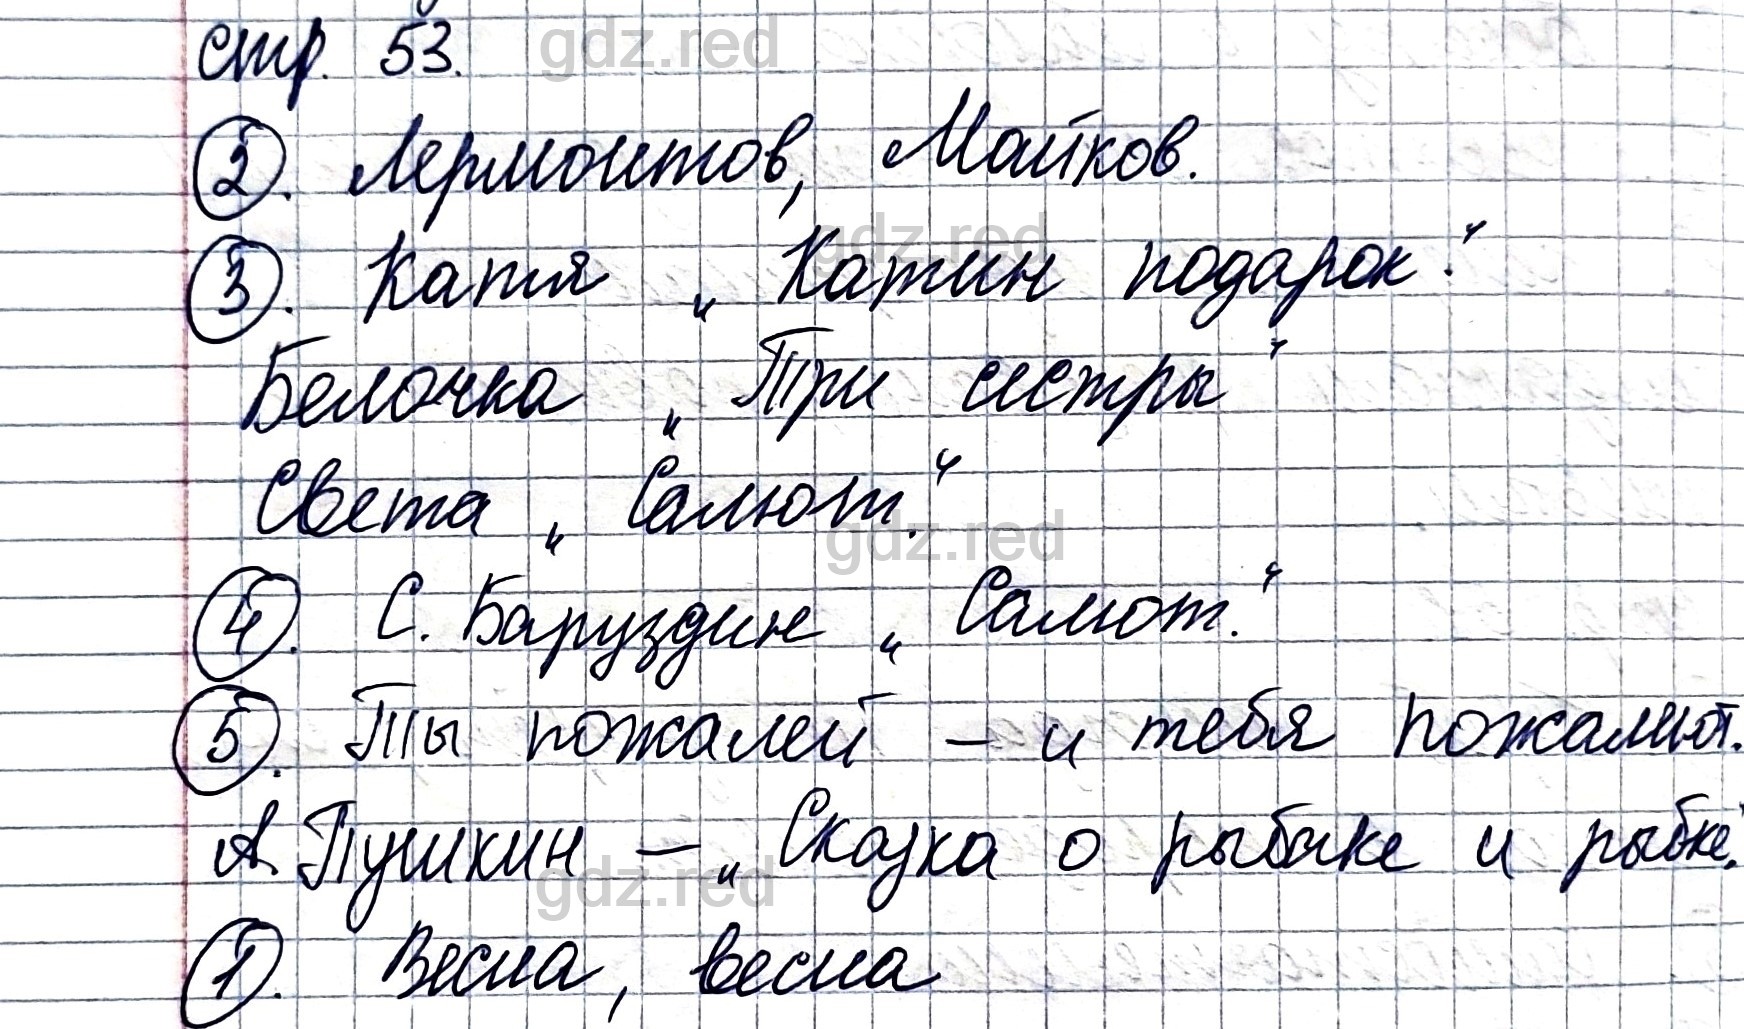 стр. 53.
gdz.red
2. Лермонтов, Майков.
gdz.red
3. Катя „ Катин подарок".
Белочка „ Три сестры"
Света „ Салют."
gdz.red
4. С. Баруздин „ Салют."
5. Ты пожалей – и тебя пожалют.
А. Пушкин – „ Сказка о рыбаке и рыбке".
gdz.red
1. Весна, весна